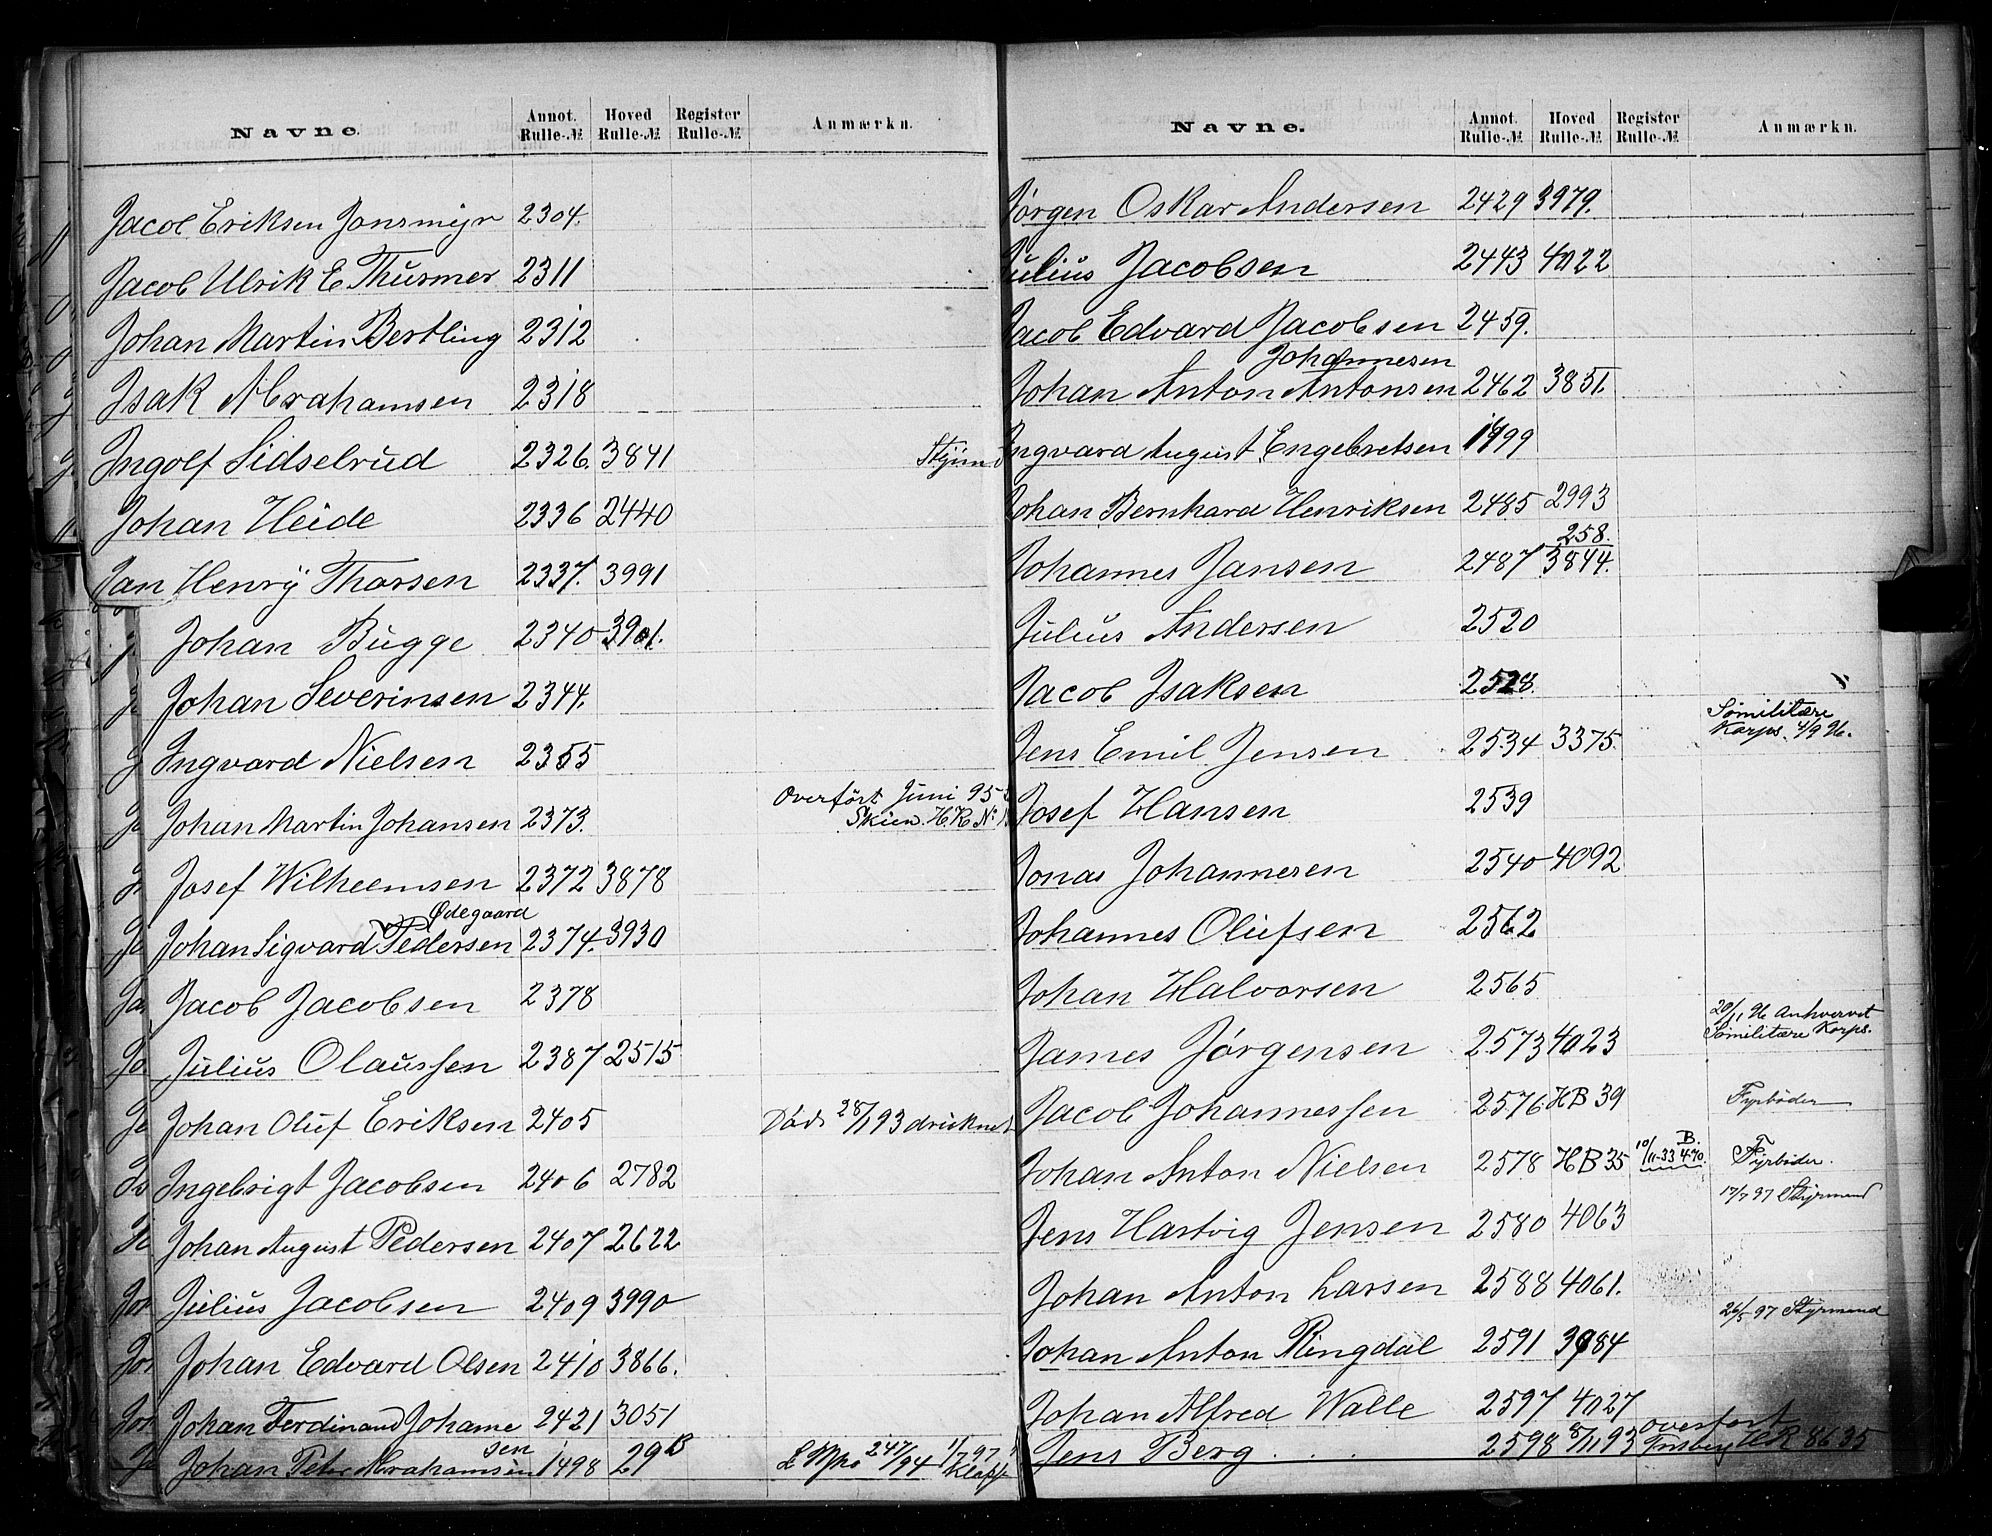 Navne. Annot. Rulle-№ Hoved Rulle-№ Register Rulle-№ Anmærkn.
Jacob Eriksen Jonsmyr 2304.
Jacob Ulrik E Thurmer 2311
Johan Martin Bertling 2312
Isak Abrahamsen 2318
Ingolf Sidselrud 2326. 3841
Johan Heide 2336 2440
Jan Henry Thorsen 2337. 3991
Johan Bugge 2340 3901.
Johan Severinsen 2344.
Ingvard Nielsen 2355
Overført Juni 95
Johan Martin Johansen 2373. Skien H.R. No
Josef Wilhelmsen 2372 3878
Ødegaard
Johan Sigvard Pedersen 2374. 3930
Jacob Jacobsen 2378
Julius Olaussen 2387 2515
Johan Oluf Eriksen 2405 Død 28/1 93 druknet
Ingebrigt Jacobsen 2406 2782
Johan August Pedersen 2407 2622
Julius Jacobsen 2409 3990
Johan Edvard Olsen 2410 3866.
Johan Ferdinand Johanne 2421 3051
sen
Johan Peter Abrahamsen 1498 29 B
Navne. Annot. Rulle-№ Hoved Rulle-№ Register Rulle-№ Anmærkn.
Jørgen Oskar Andersen 2429 3979.
Julius Jacobsen 2443 4022
Jacob Edvard Jacobsen 2459.
Johannesen
Johan Anton Antonsen 2462 3851.
Ingvard August Engebretsen 1499
Johan Bernhard Henriksen 2485 2993
258.
Johannes Jansen 2487 3844.
Julius Andersen 2520
Jacob Isaksen 2528.
Sømilitære
Korps. 4/9 96.
Jens Emil Jensen 2534 3375.
Josef Hansen 2539
Jonas Johannesen 2540 4092
Johannes Olufsen 2562
Johan Halvorsen 2565
20/11 96 Anhvervet
Sømilitære Korps.
James Jørgensen 2573 4023
Jacob Johannessen 2576 HB 39 Fyrbøder
Johan Anton Nielsen 2578 HB 35 10/11-33 B. 470. Fyrbøder.
17/7 97 Styrmand
Jens Hartvig Jensen 2580 4063
Johan Anton Larsen 2588 4061.
26/5 97 Styrmand
Johan Anton Ringdal 2591 3984
Johan Alfred Walle 2597 4027
overført
Jens Berg 2598 8/11 93 Tønsberg HR 8635